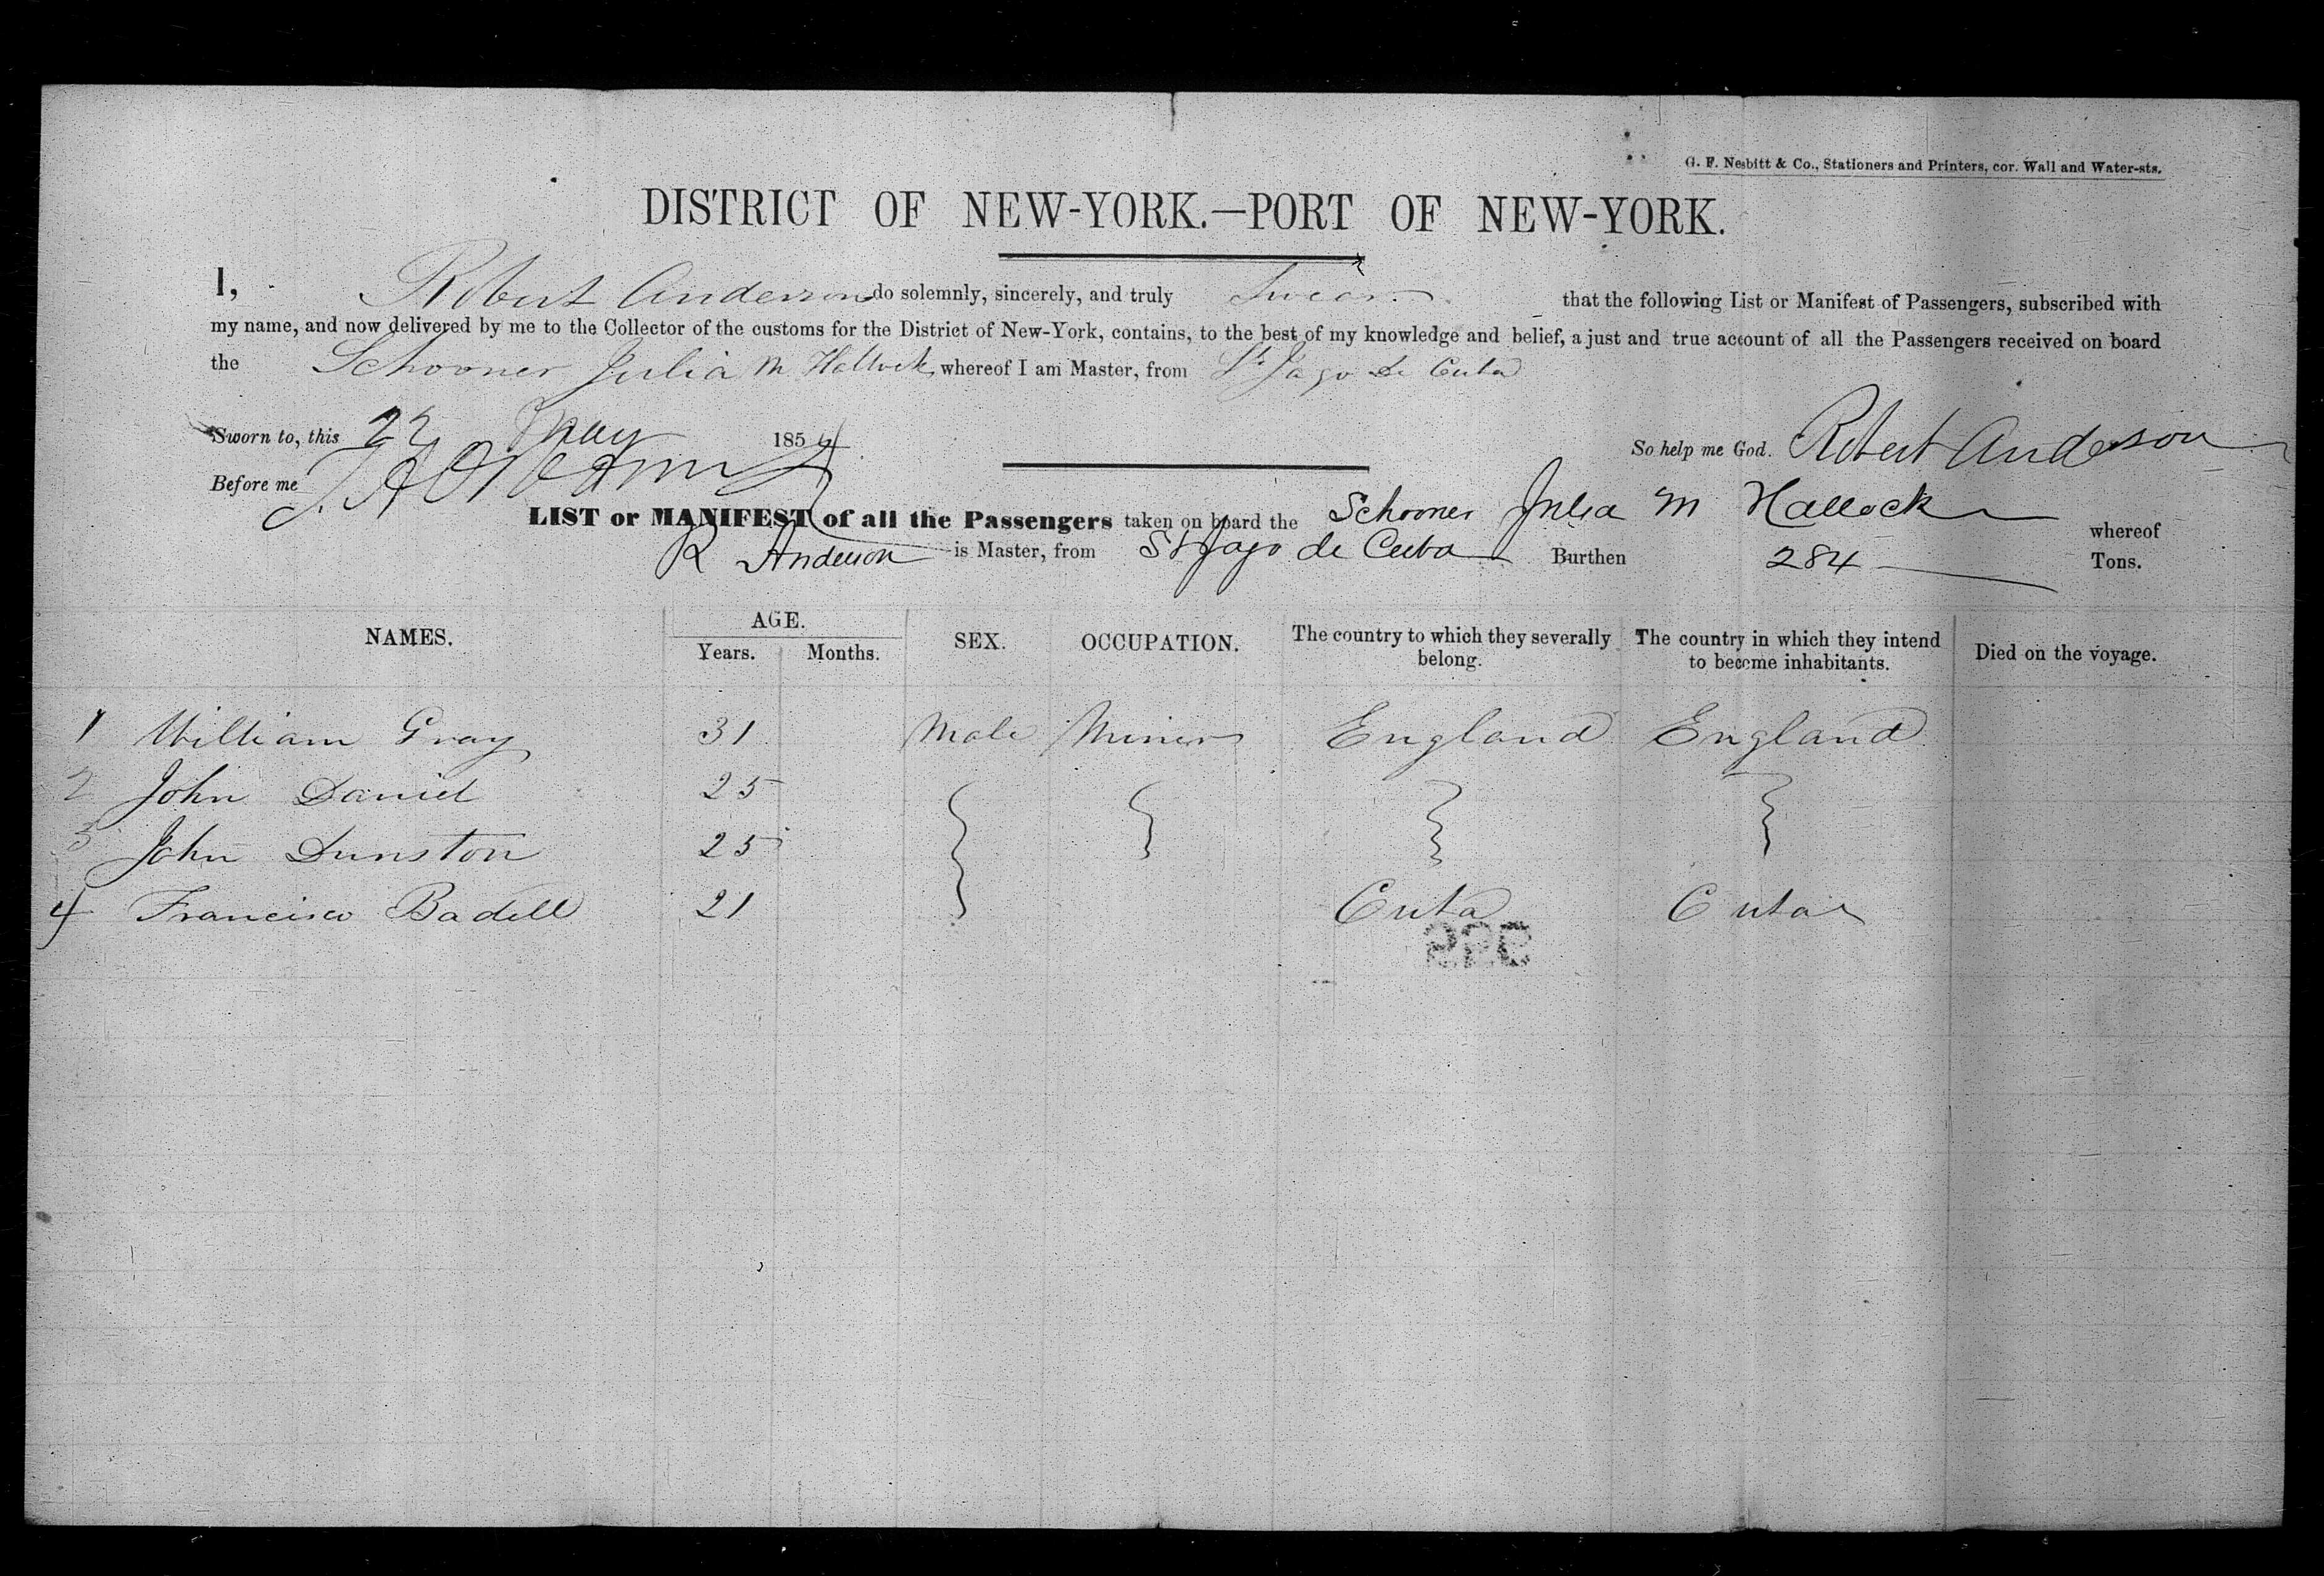 G. F. Nesbitt & Co., Stationers and Printers, cor. Wall and Water-sts.
DISTRICT OF NEW-YORK.—PORT OF NEW-YORK.
I, Robert Anderson do solemnly, sincerely, and truly Swear that the following List or Manifest of Passengers, subscribed with
my name, and now delivered by me to the Collector of the customs for the District of New-York, contains, to the best of my knowledge and belief, a just and true account of all the Passengers received on board
the Schooner Julia M Hallock whereof I am Master, from St Jago De Cuba
Sworn to, this 22 May 1854
So help me God. Robert Anderson
Before me
LIST or MANIFEST of all the Passengers taken on board the Schooner Julia M Hallock whereof
R Anderson is Master, from St Jago de Cuba Burthen 284 Tons.
NAMES. AGE. Years. Months. SEX. OCCUPATION. The country to which they severally belong. The country in which they intend to become inhabitants. Died on the voyage.
1 William Gray 31 Male Miner England England
2 John Daniel 25
3 John Dunston 25
4 Francisco Badell 21 Cuba Cuba